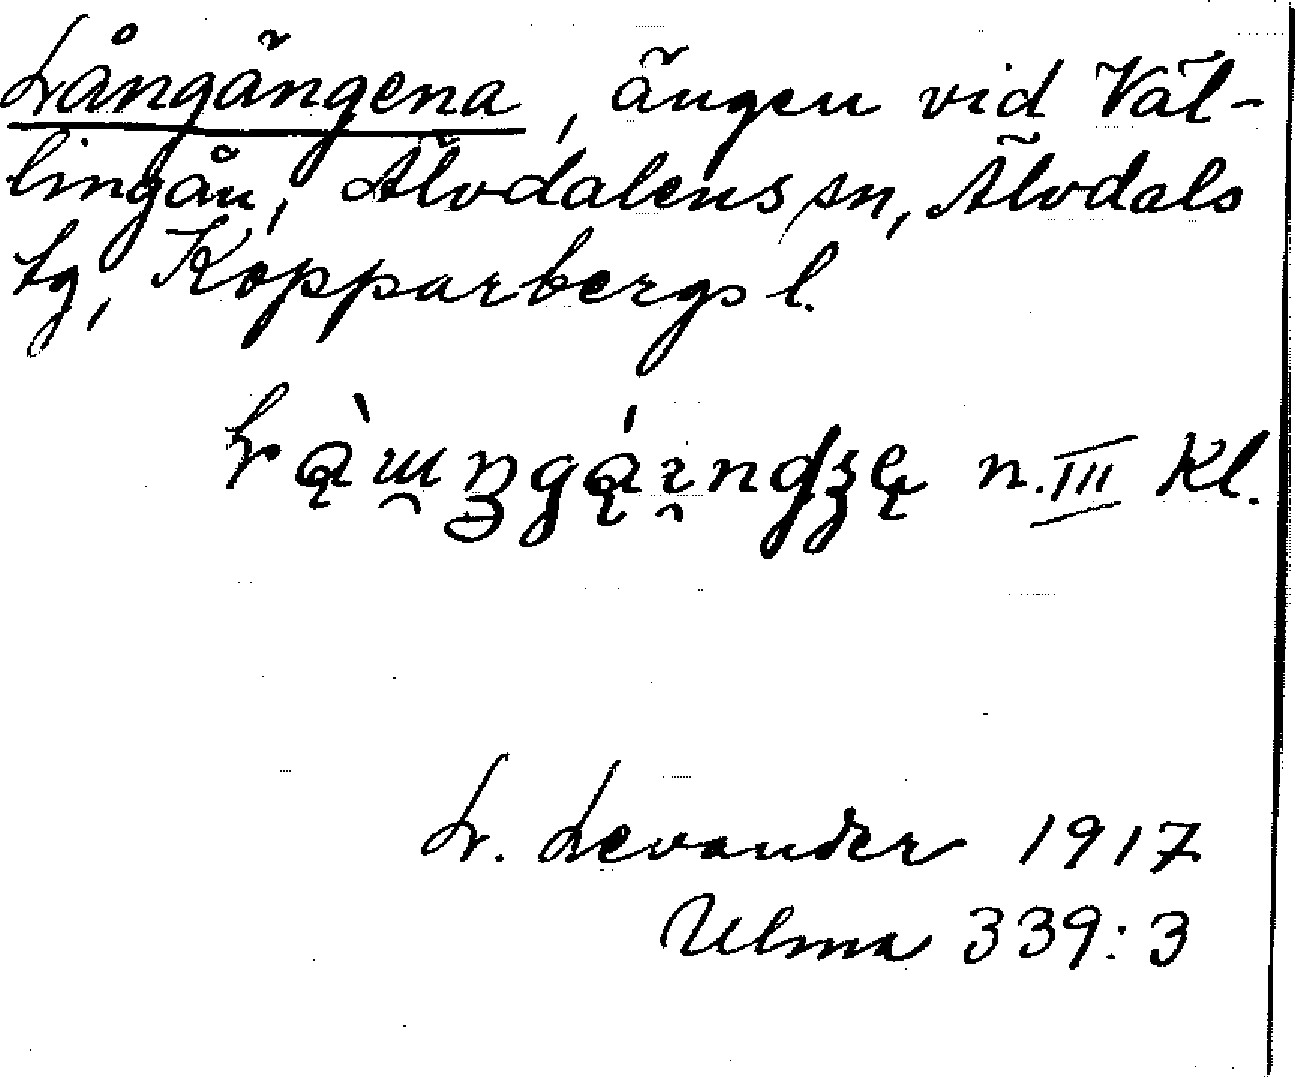 Långängena, ängen vid Väl-
lingån, Älvdalens sn, Älvdals
tg, Kopparbergs l.
n. III Kl.
L. Levander 1917
Ulma 339:3